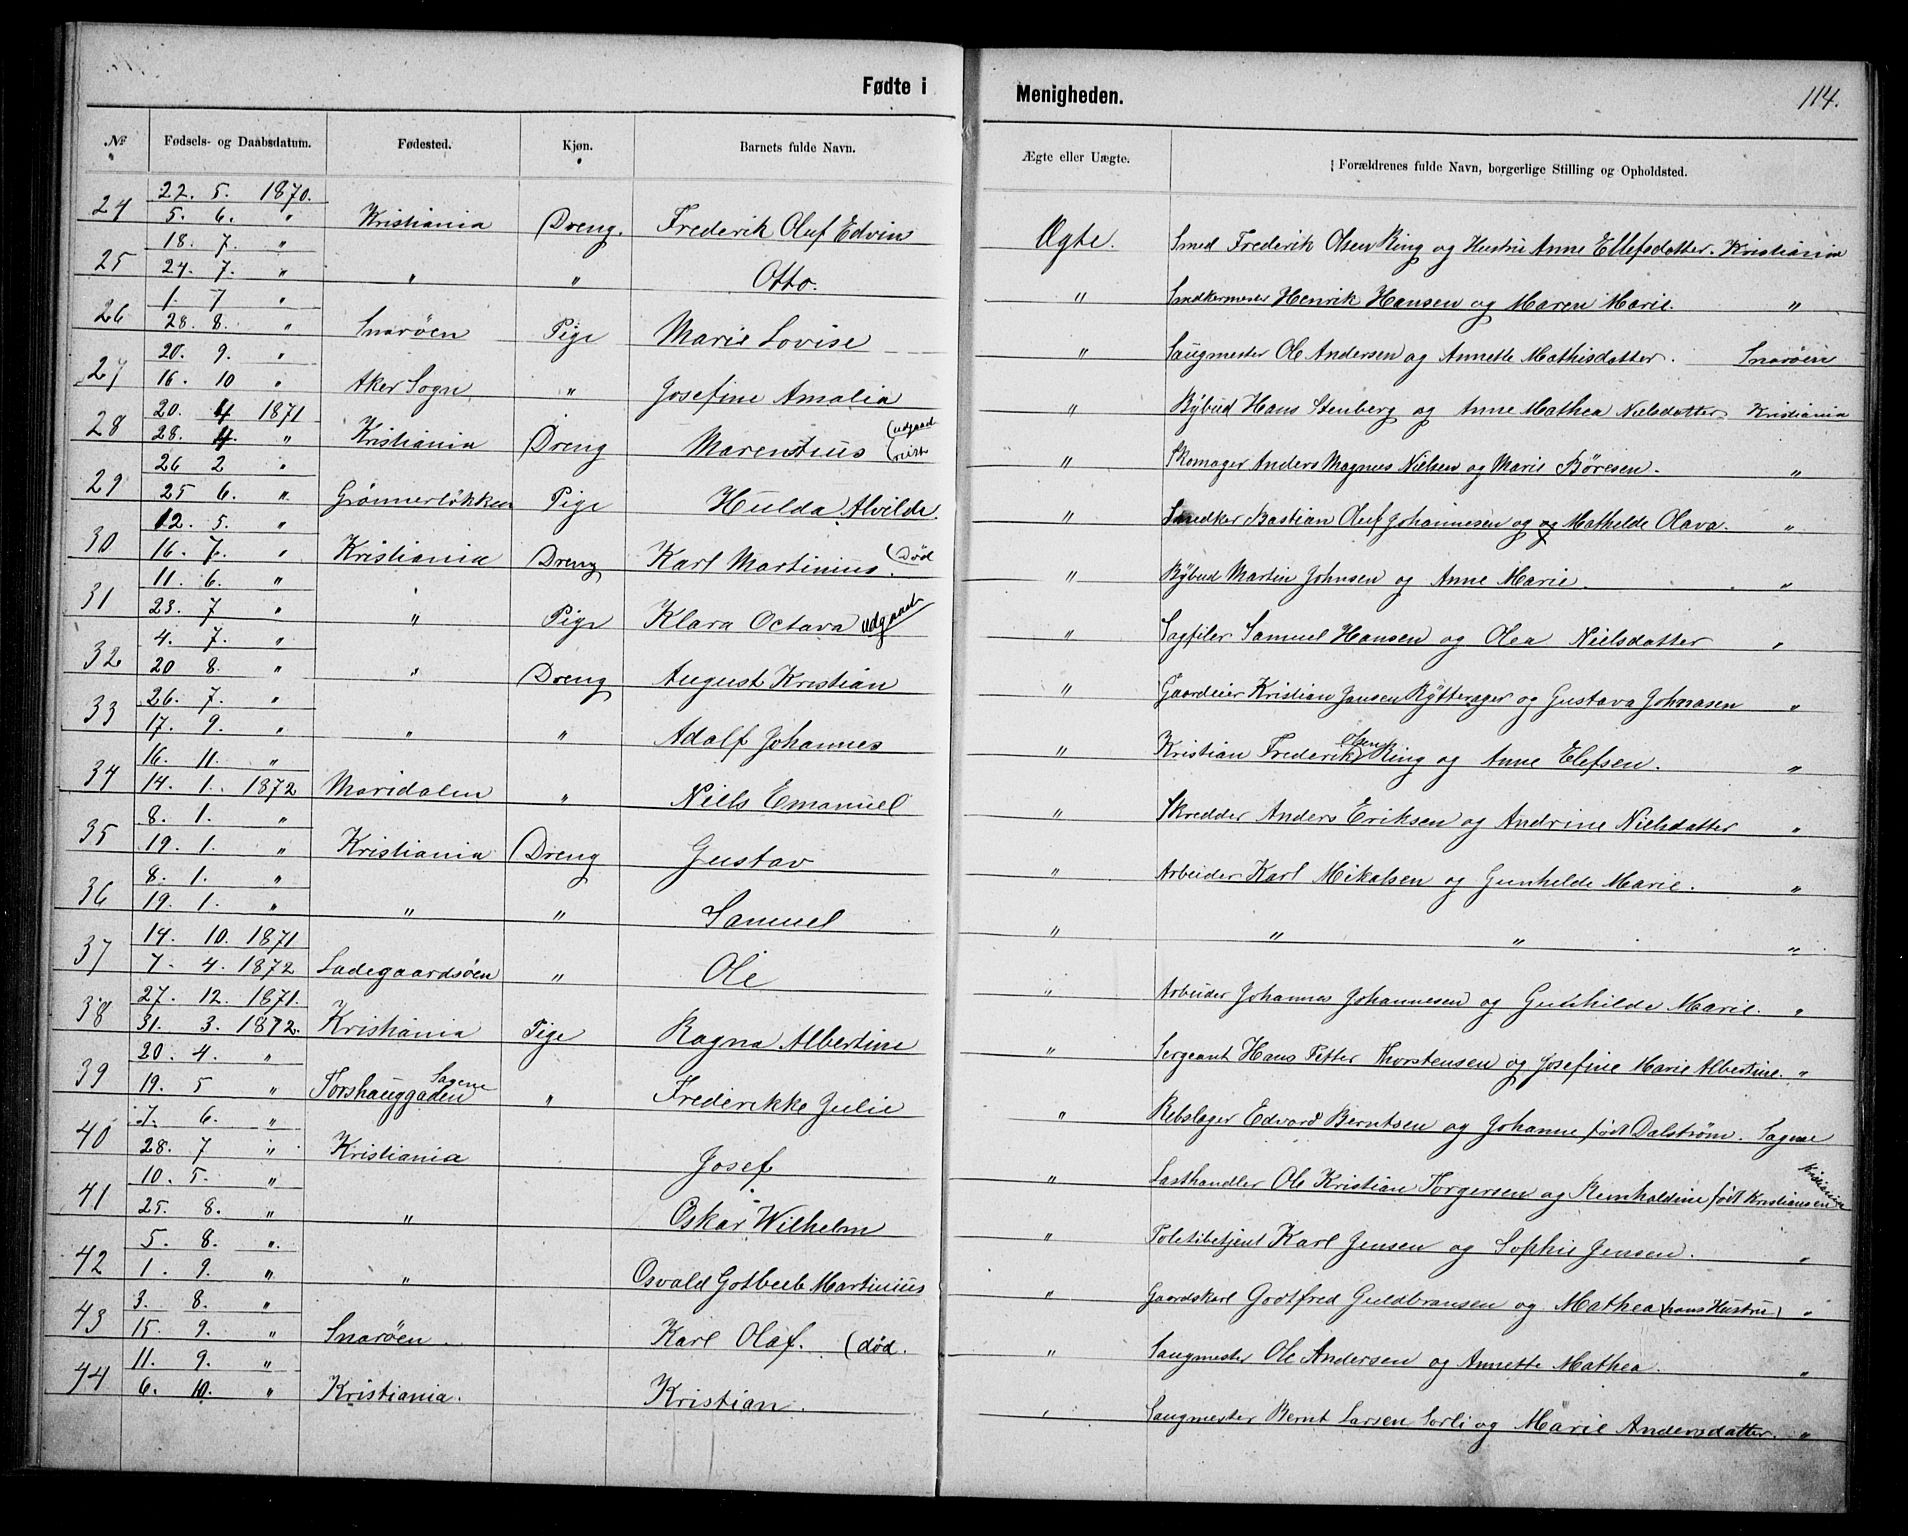 Fødte i Menigheden. 114.
№ Fødsels- og Daabsdatum. Fødested. Kjøn. Barnets fulde Navn. Ægte eller Uægte. Forældrenes fulde Navn, borgerlige Stilling og Opholdsted.
22. 5. 1870.
24 5. 6. " Kristiania Dreng. Frederik Oluf Edvin Ægte. Smed Frederik Olsen Ring og Hustru Anne Ellefsdatter. Kristiania
18. 7. "
25 24. 7. " " " Otto. " Snedkermester Henrik Hansen og Maren Marie. "
1. 7 "
26 28. 8. " Snarøen Pige Marie Lovise " Saugmester Ole Andersen og Annette Mathisdatter. Snarøen
20. 9. "
27 16. 10 " Aker Sogn " Josefine Amalia " Bybud Hans Stenberg og Anne Mathea Nielsdatter Kristiania
20. 4 1871
28 28. 4. " Kristiania Dreng Marentius (udgaad (reist " Skomager Anders Magnus Nielsen og Marie Børesen. "
26 2 "
29 25 6. " Grønnerløkken Pige Hulda Alvilde. " Snedker Bastian Oluf Johannesen og og Mathilde Olava. "
12. 5. "
30 16. 7. " Kristiania Dreng Karl Martinius. (Død " Bybud Martin Johnsen og Anne Marie . "
11. 6. "
31 23. 7 " " Pige Klara Octava udgaaet " Sagfiler Samuel Hansen og Olea Nielsdatter "
4. 7. "
32 20 8. " " Dreng August Kristian " Gaardeier Kristian Jansen Rytterager og Gustava Johnasen "
26. 7. "
33 17. 9. " " " Adolf Johannes " Kristian Frederik Olsen Ring og Anne Elefsen. "
16. 11. "
34 14. 1. 1872 Maridalen " Niels Emanuel " Skredder Anders Eriksen og Andrine Nielsdatter "
8. 1. "
35 19. 1. " Kristiania Dreng Gustav " Arbeider Karl Mikalsen og Gunhilde Marie. "
8. 1. "
36 19. 1. " " " Samuel " " " "
14. 10. 1871
37 7. 4. 1872 Ladegaardsøen " Ole " Arbeider Johannes Johannesen og Gunhilde Marie. "
27. 12. 1871.
38 31. 3. 1872. Kristiania Pige Ragna Albertine " Sergeant Hans Petter Thorstensen og Josefine Marie Albertine. "
20. 4. "
39 19. 5 " Torshauggaden Sagene " Frederikke Julie " Rebslager Edvard Berntsen og Johanne født Dalstrøm. Sagene
7. 6. "
40 28. 7 " Kristiania Josef " Lasthandler Ole Kristian Torgersen og Reinholdine født Kristiansen Kristiania
10. 5. "
41 25. 8. " " Oskar Wilhelm " Politibetjent Karl Jensen og Sophie Jensen. "
5. 8. "
42 1. 9. " " Osvald Gotleeb Martinius " Gaardskarl Godtfred Guldbransen og Mathea (hans Hustru) "
3. 8. "
43 15. 9. " Snarøen. Karl Olaf. (død. " Saugmester Ole Andersen og Annette Mathea. "
11. 9. "
44 6. 10. " Kristiania. Kristian. " Saugmester Bernt Larsen Sorli og Marie Andersdatter. "